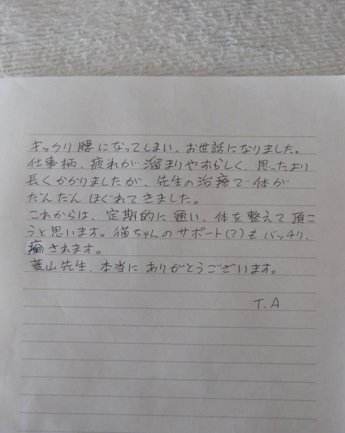 ぎっくり腰になってしまい、お世話になりました。
仕事柄、疲れが溜まりやすらしく、思ったより
長くかかりましたが、先生の治療で体が
だんだんほぐれてきました。
これからは、定期的に通い、体を整えて頂こ
うと思います。猫ちゃんのサポート(?)もバッチリ、
癒されます。
葉山先生、本当にありがとうございます。
T.A